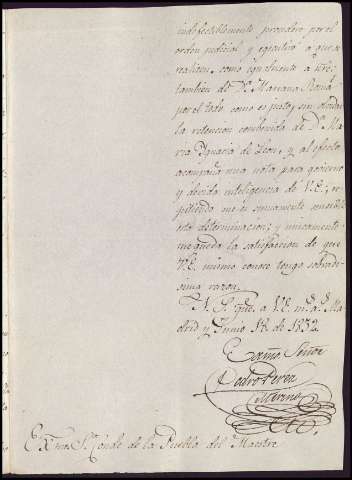 indefectiblemente proceder por el
orden judicial y egecutivo á que se
realicen, como igualmente á
tambien de Dª Mariana
por el todo como es justo y sin olvidar
la retencion combenida al Dª Ma-
ria Ygnacia de Leon, y al efecto
acompaña una nota para govierno
y devida inteligencia de V.E.; re-
pitiendo me es sumamente sensible
esta determinacion; y unicamente
me queda la satisfaccion de que
V.E. mismo conoce tengo sobradi-
sima razon.
N. S. gue. á V.E. ms. as. Ma-
drid y Junio 18 de 1832.
Exmo. Señor
Pedro Perez
Merino
Exmo. Sr. Conde de la Puebla del Maestre